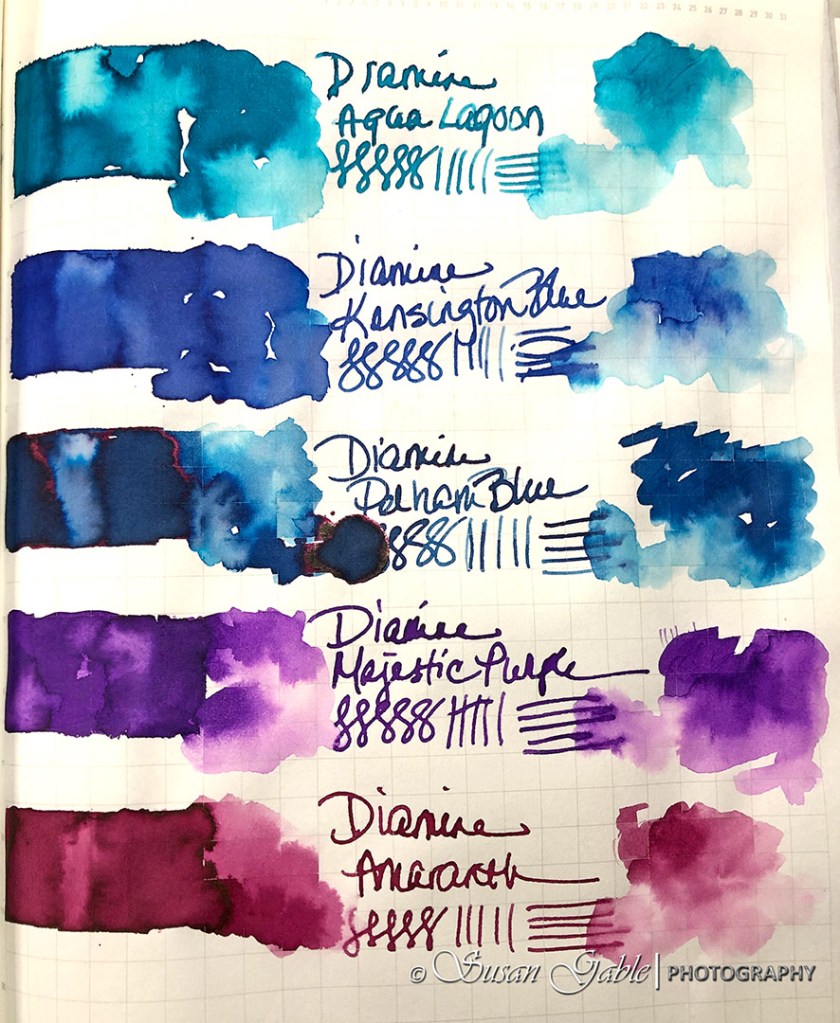 Diamine
Aqua Lagoon
Diamine
Kensington Blue
Diamine
Pelham Blue
Diamine
Majestic Purple
Diamine
Amaranth
© Susan Gable | PHOTOGRAPHY